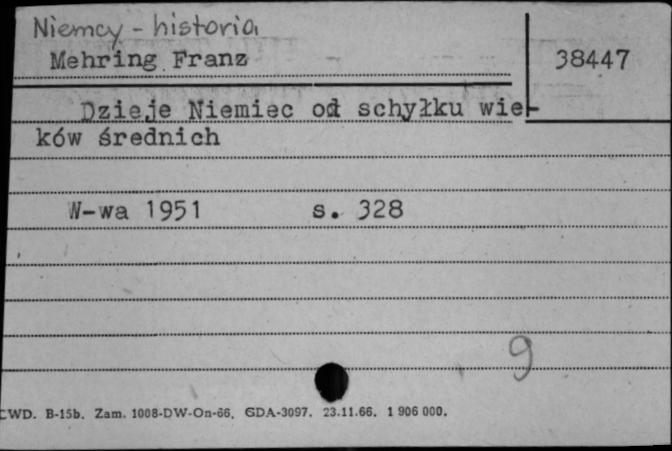 Niemcy - historia
Mehring Franz
38447
Dzieje Niemiec od schyłku wie-
ków średnich
W-wa 1951 s. 328
9
CWD. B-15b. Zam. 1008-DW-On-66. GDA-3097. 23.11.66. 1 906 000.